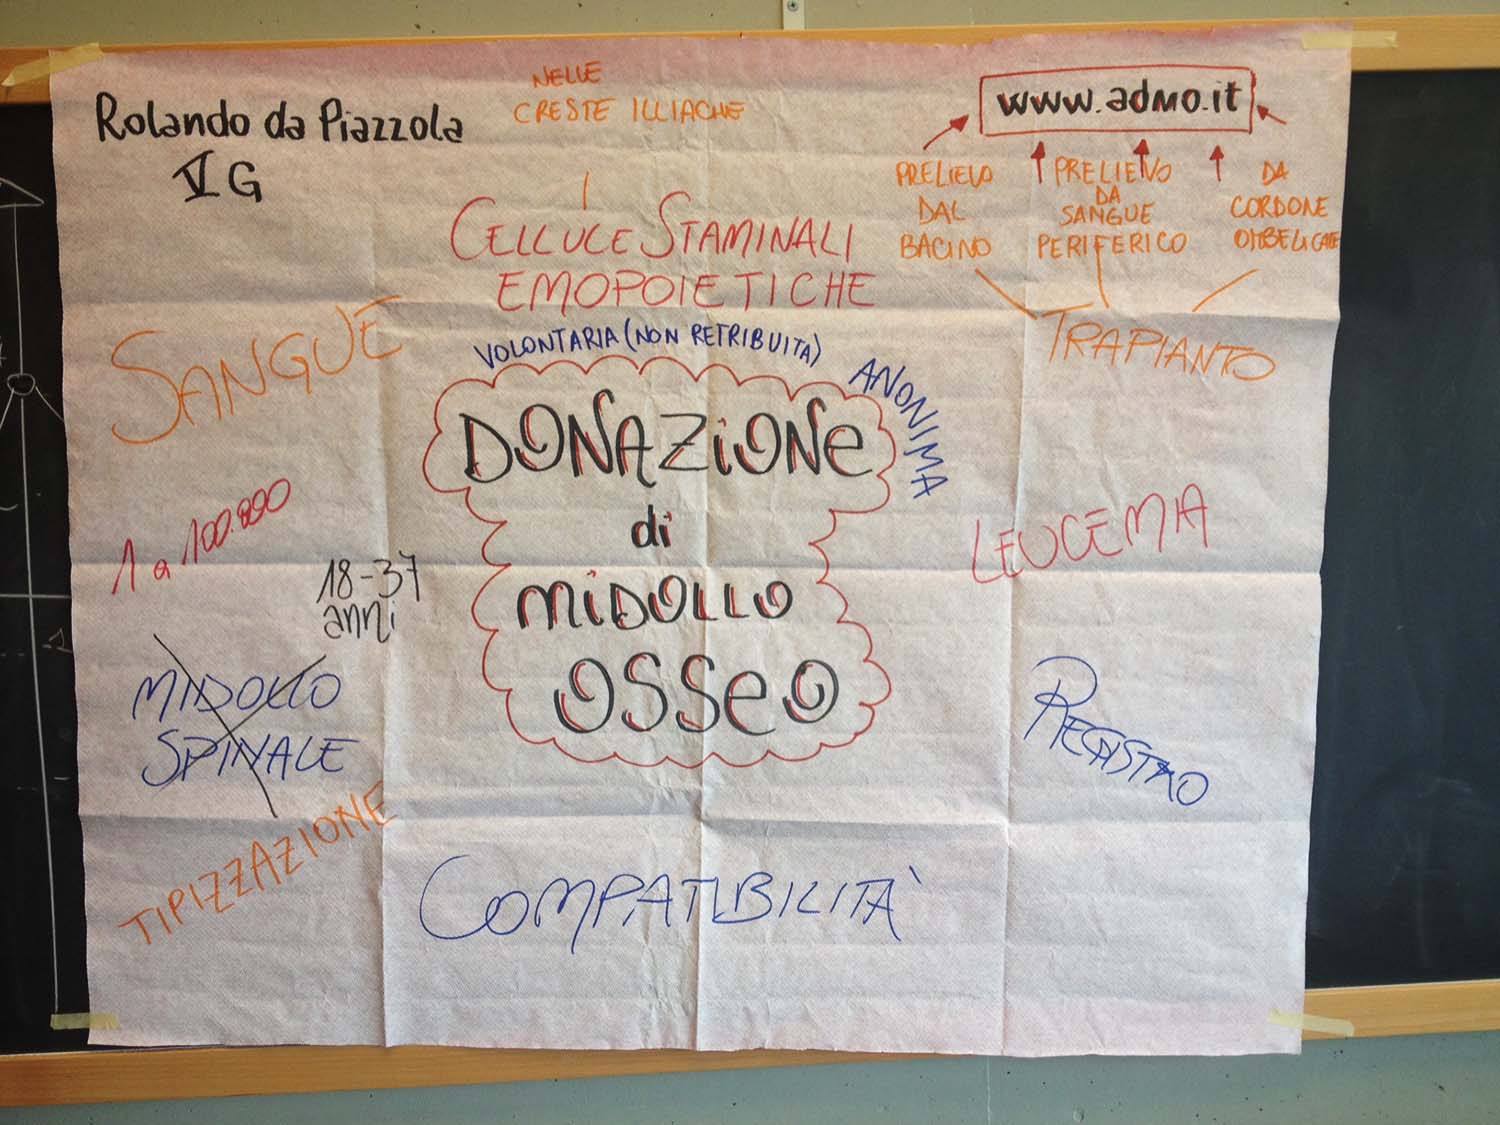 Rolando da Piazzola
V G
NELLE
CRESTE ILLIACHE
www.admo.it
PRELIEVO
DAL
BACINO
PRELIEVO
DA
SANGUE
PERIFERICO
DA
CORDONE
OMBELICALE
CELLULE STAMINALI
EMOPOIETICHE
TRAPIANTO
SANGUE
VOLONTARIA (NON RETRIBUITA)
ANONIMA
DONAZIONE
di
MIDOLLO
OSSEO
1 a 100.000
18-37
anni
LEUCEMIA
MIDOLLO
SPINALE
REGISTRO
TIPIZZAZIONE
COMPATIBILITÀ